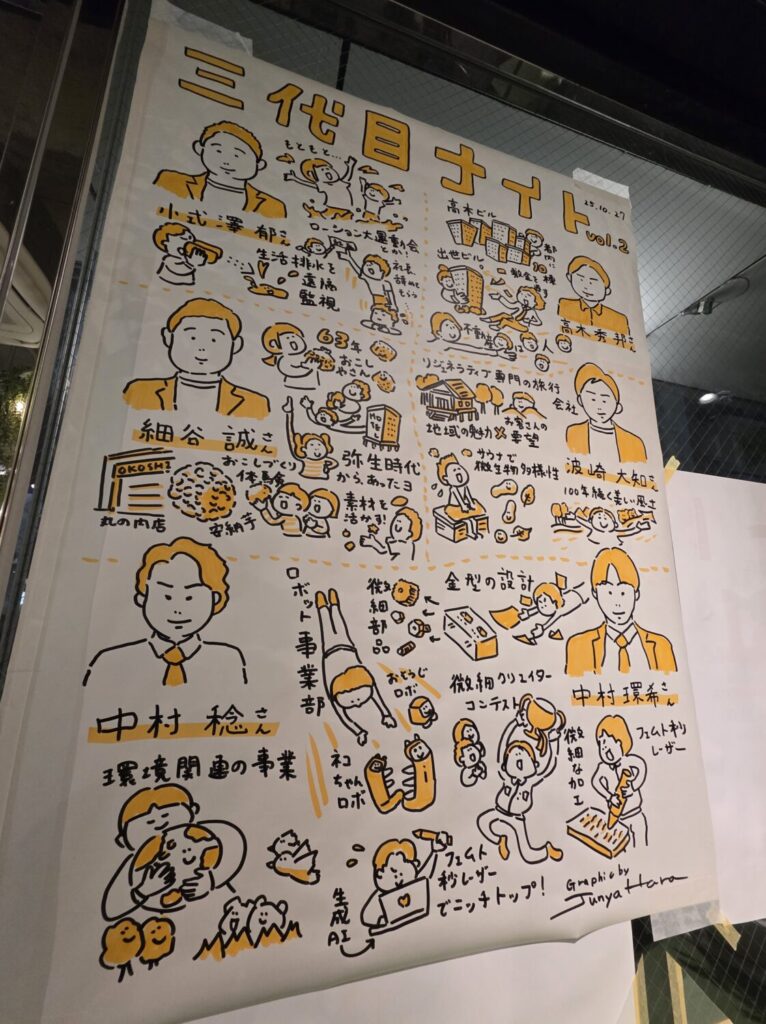 三代目ナイト
vol.2
25.10.27
小式澤 郁さん
もともと…
ローション大運動会
とか!
生活排水を
遠隔
監視
社長
辞めて
もらう
高木ビル
都内に
10
棟
出世ビル。
敷金を
高木秀邦さん
不動産
人
細谷 誠さん
63年
おこし
やさん
HOTEL
弥生時代
から、あったヨ
OKOSHI
丸の内店
おこしづくり
体験
安納芋
素材を
活かす!
リジェネラティブ専門の旅行
会社
地域の魅力×
お客さんの
要望
波崎 大知さん
サウナで
微生物多様性
100年続く美しい風土
中村 稔さん
環境関連の事業
ロボット事業部
微細部品
金型の設計
おそうじ
ロボ
ネコ
ちゃん
ロボ
微細クリエイター
コンテスト
中村環希さん
微細な加工
フェムト秒
レーザー
生成AI
フェムト
秒レーザー
でニッチトップ!
Graphic by
Junya Hara